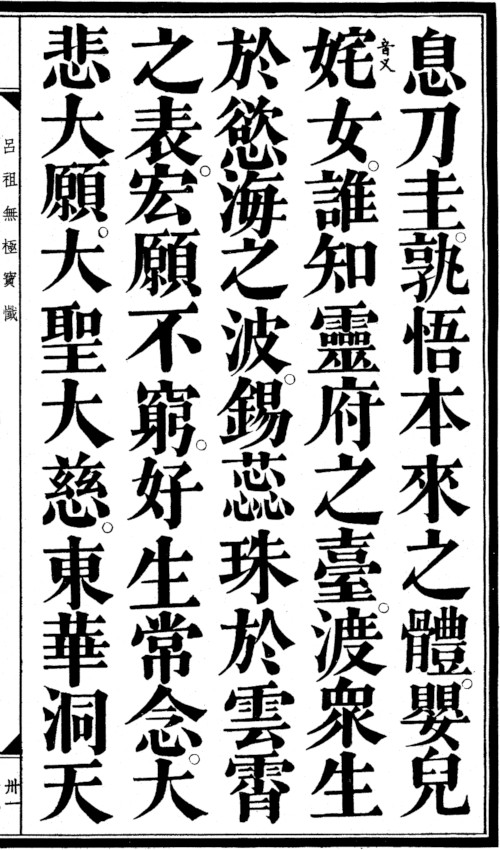 息刀圭。孰悟本來之體。嬰兒
姹音叉女。誰知靈府之臺。渡衆生
於慾海之波。錫蕊珠於雲霄
之表。宏願不窮。好生常念。大
悲大願。大聖大慈。東華洞天
呂祖無極寶懺
卅一